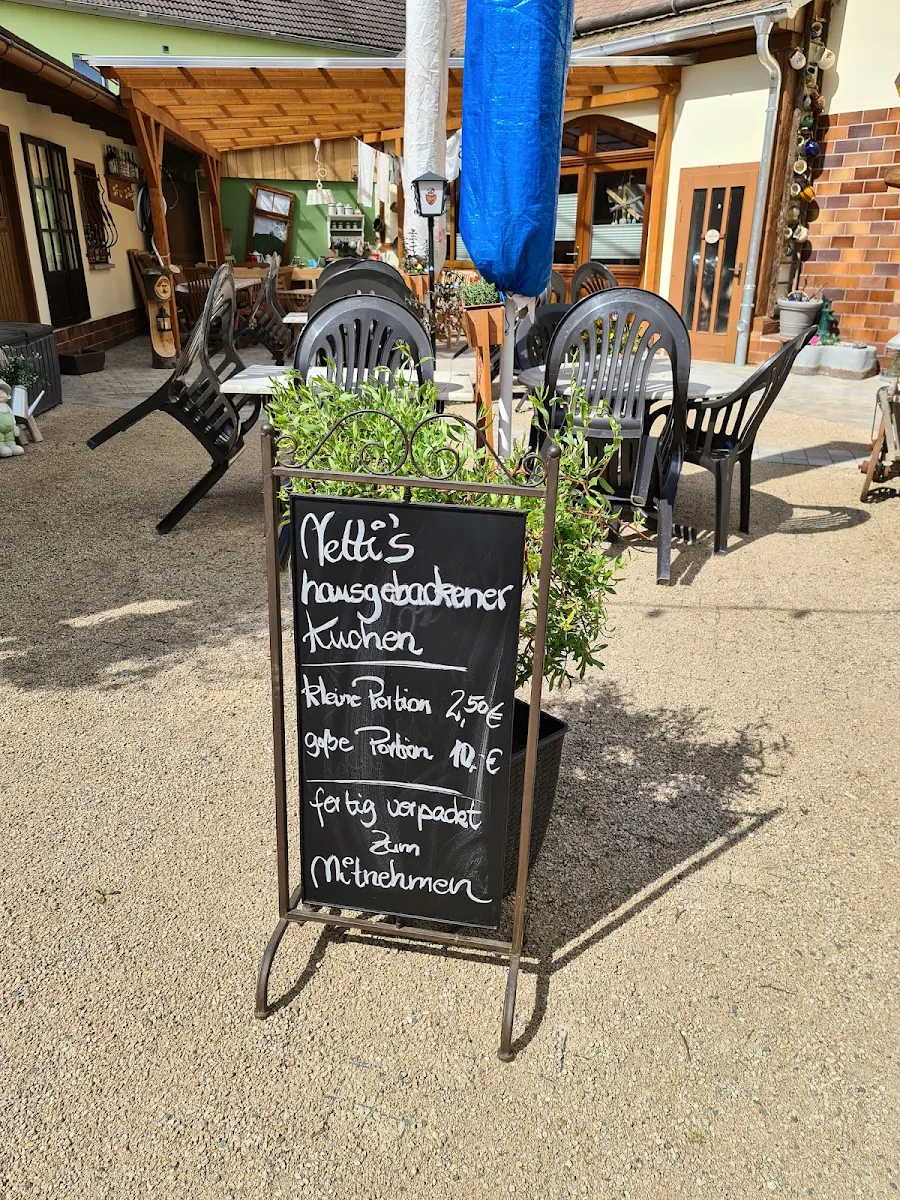 Netti's
hausgebackener
Kuchen
kleine Portion 2,50€
große Portion 10,-€
fertig verpackt
zum
Mitnehmen